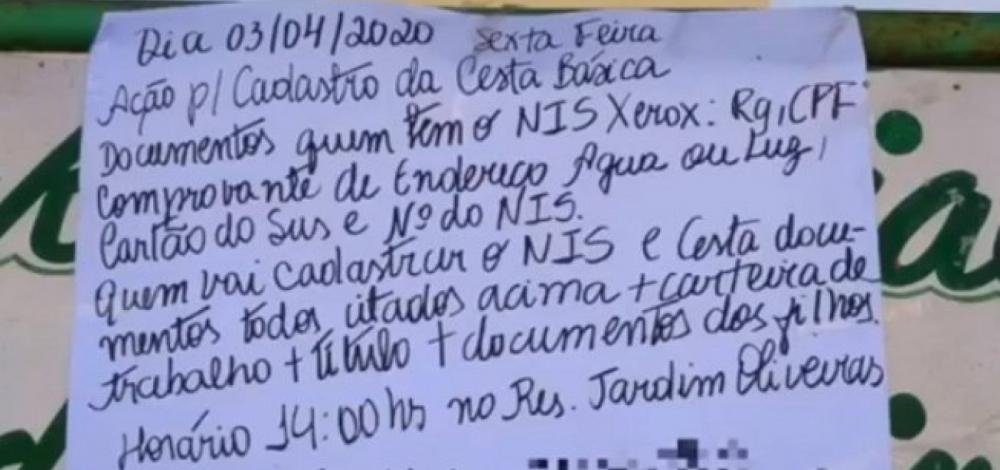 Dia 03/04/2020 Sexta Feira
Ação p/ Cadastro da Cesta Básica
Documentos quem tem o NIS Xerox: Rg, CPF
Comprovante de Endereço Água ou Luz,
Cartão do Sus e Nº do NIS.
Quem vai cadastrar o NIS e Cesta docu-
mentos todos citados acima + carteira de
trabalho + título + documentos dos filhos.
Horário 14:00 hs no Res. Jardim Oliveiras